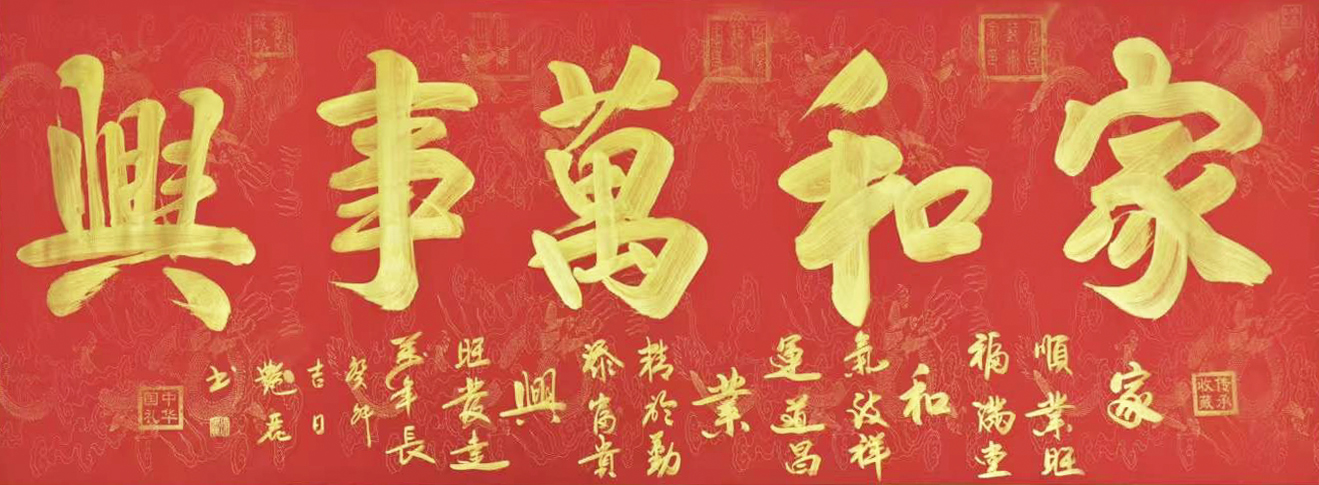 家和萬事興
传承收藏
家
順業旺
福滿堂
和
氣致祥
運道昌
業
精於勤
添富貴
興
旺發達
萬年長
癸卯
吉日
书
中华国礼